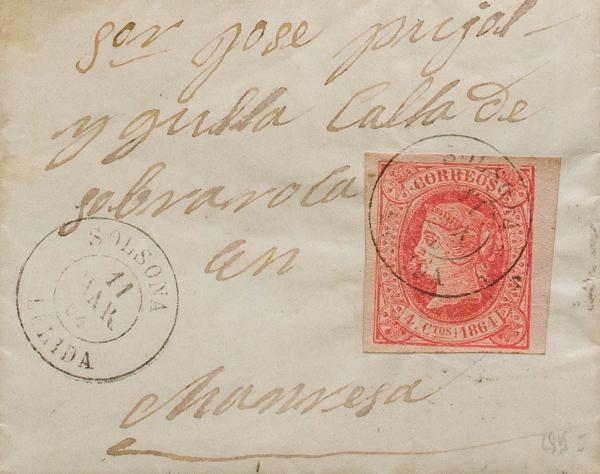 Sor jose pujol
y gulla Calla de
sobraroca
an
Manresa
SOLSONA
11
MAR
64
LERIDA
CORREOS
4. CTOS 1864